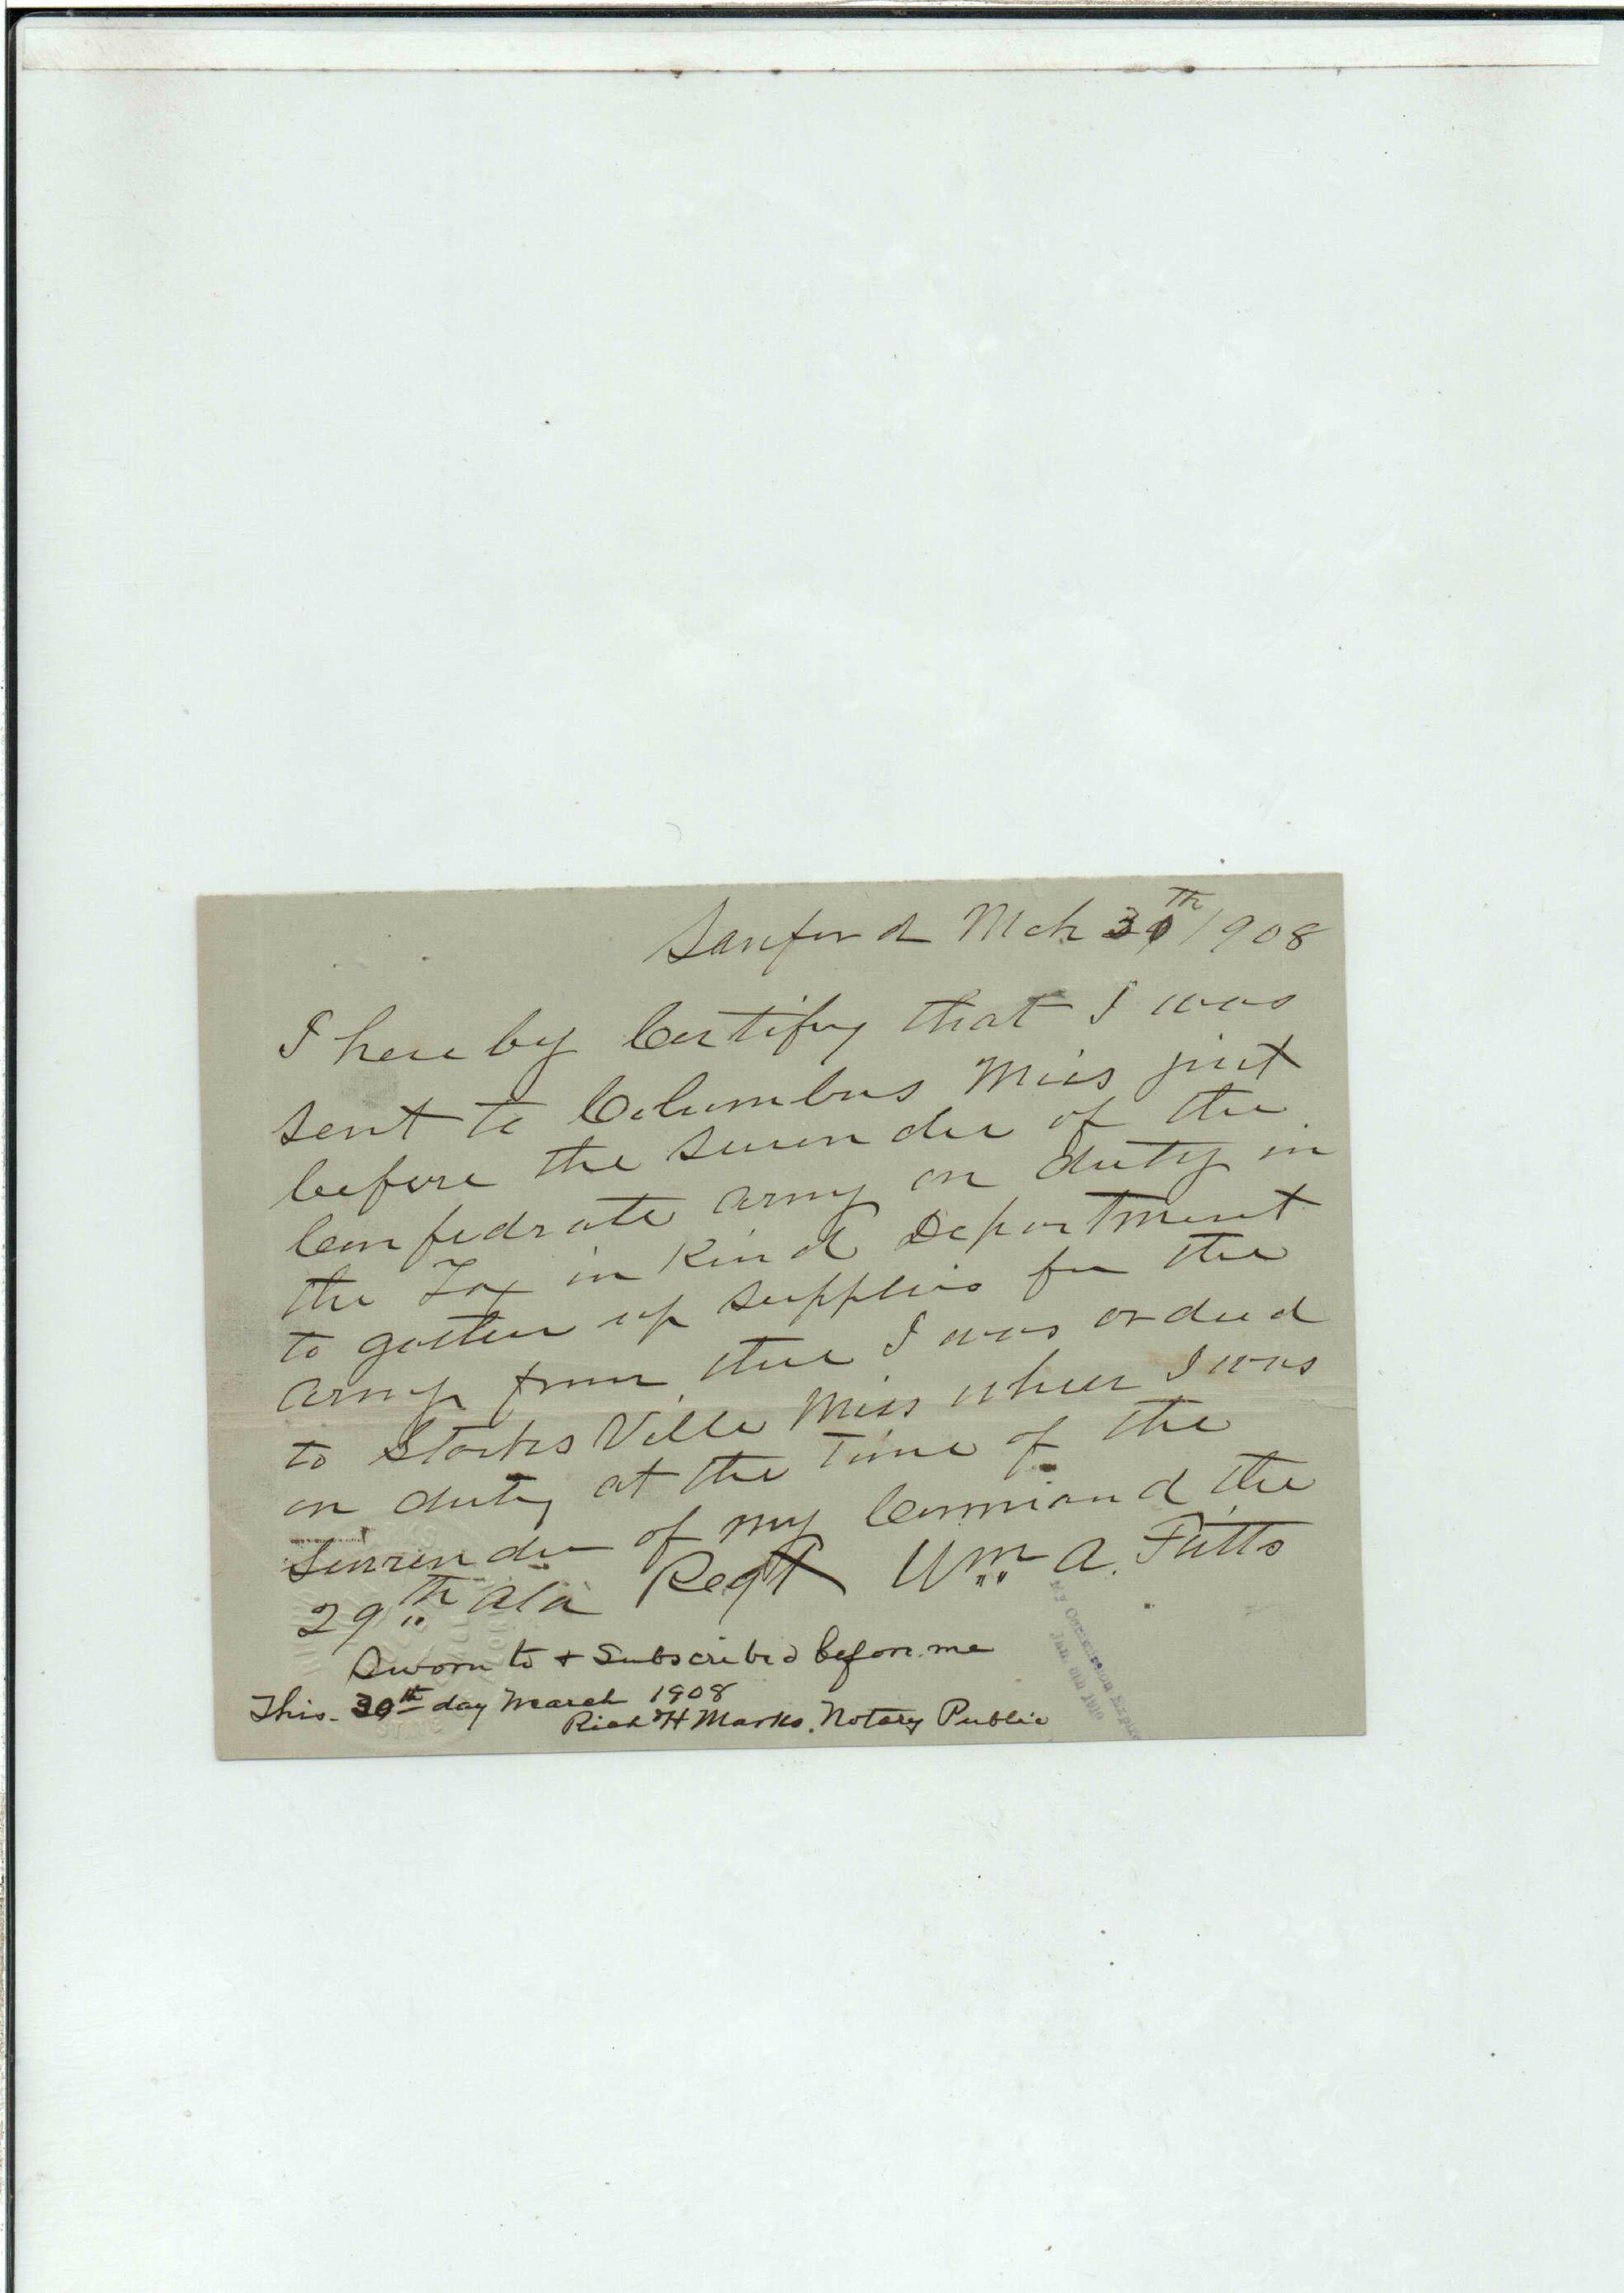 Sanford Mch 30th 1908
I here by Certify that I was
sent to Columbus Miss just
before the surender of the
Confedrate army on duty in
the Tax in Kind Department
to gather up supplies for the
army from there I was ordered
to Starks Ville Miss where I was
on duty at the Time of the
surrender of my Command the
29th Ala Regt Wm A. Fitts
Sworn to + Subscribed before me
This 30th day March 1908
Rich H Marks. Notary Public
My Commission Expires
Jan